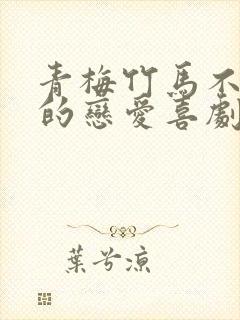 青梅竹馬不
的戀愛喜劇
葉兮涼